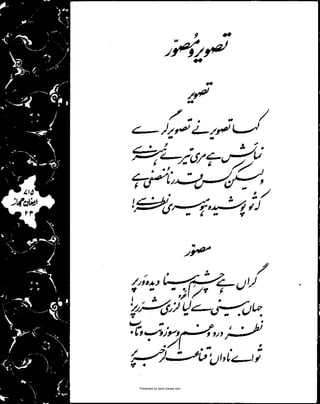 تصویر و مُصوّر
تصویر
کہا تصویر نے تصویر گر سے
نمائش ہے مری تیرے ہُنر سے
ولیکن کس قدر نا منصفی ہے
کہ تُو پوشیدہ ہو میری نظر سے!
مصوّر
گراں ہے چشمِ بینا دیدہ ور پر
جہاں بینی سے کیا گزری شرر پر!
نظر، درد و غم و سوز و تب و تاب
تُو اے ناداں، قناعت کر خبر پر
۷۱۵
ارمغانِ حجاز
۲۳
Presented by www.ziaraat.com